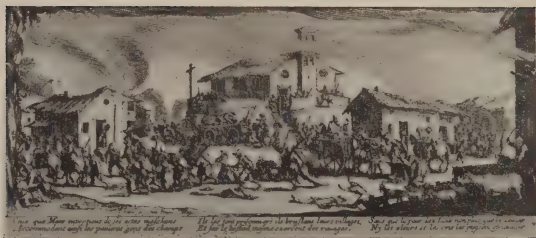 Ceux que Mars entretient de ses actes meschans
Accommodent ainsi les pauures gens des champs
Ils les font prisonniers ils bruslent leurs villages,
Et sur le bestail mesme exercent des rauages,
Sans que la peur des Loix non plus que le deuoir
Ny les pleurs et les cris les puissent